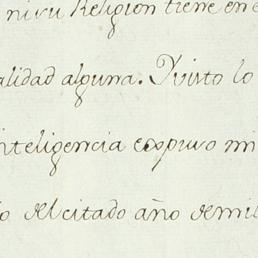 ni su Religion tiene en e
alidad alguna. Y visto lo
nteligencia expuso mi
o del citado año de mil